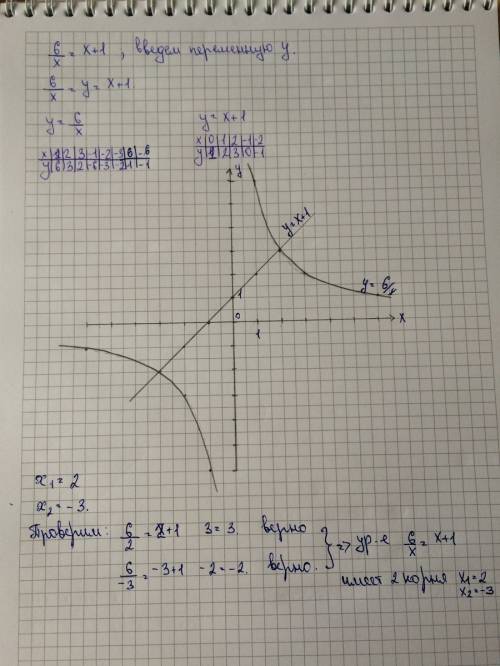 6/x = x+1 , введем переменную y.
6/x = y = x+1
y = 6/x
x | 1 | 2 | 3 | -1 | -2 | -3 | 6 | -6
y | 6 | 3 | 2 | -6 | -3 | -2 | 1 | -1
y = x+1
x | 0 | 1 | 2 | -1 | -2
y | 1 | 2 | 3 | 0 | -1
y
y=x+1
y = 6/x
1
0
1
x
x₁ = 2
x₂ = -3.
Проверим: 6/2 = 2+1 3 = 3. верно
6/-3 = -3+1 -2 = -2. верно.
} => ур-е 6/x = x+1
имеет 2 корня x₁=2
x₂=-3